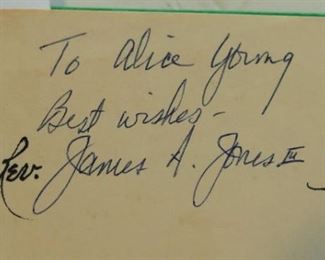 To Alice Young
Best wishes -
Rev. James A. Jones III